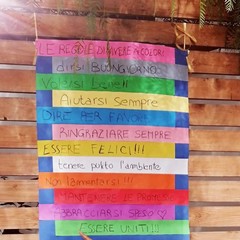 LE REGOLE DI VIVERE A COLORI
dirsi BUONGIORNO
Volersi bene!!
Aiutarsi sempre
DIRE PER FAVORE
RINGRAZIARE SEMPRE
ESSERE FELICI!!!!
tenere pulito l'ambiente
Non lamentarsi!!!
MANTENERE LE PROMESSE
ABBRACCIARSI SPESSO ♡
ESSERE UNITI!!!